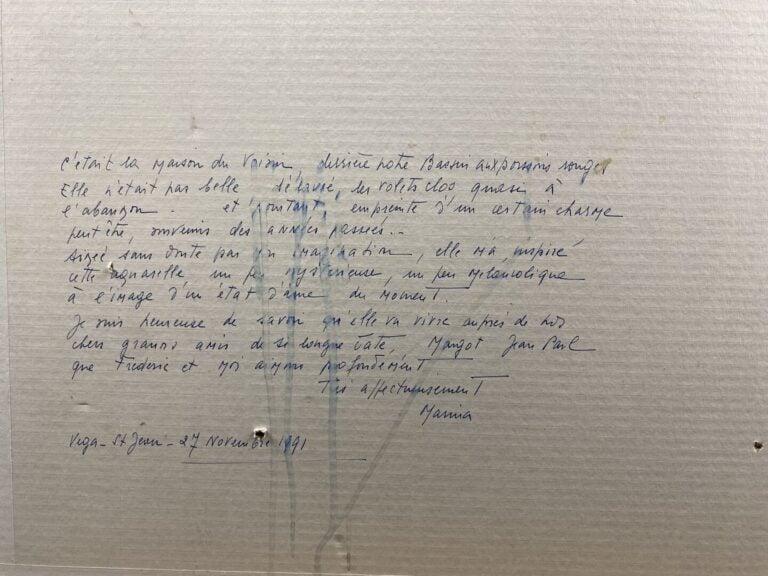 C'était la maison du Voisin, derrière notre Bassin aux poissons rouges
Elle n'était pas belle délavée, les volets clos quasi à
l'abandon. et pourtant, empreinte d'un certain charme
peut être, souvenirs des années passées..
Aimée sans doute par mon imagination, elle m'a, inspiré
cette aquarelle un peu mystérieuse, un peu mélancolique
à l'image d'un état d'âme du moment.
Je suis heureuse de savoir qu'elle va vivre auprès de nos
chers grands amis de si longue date, Margot Jean Paul
que Frédéric et moi aimons profondément.
Très affectueusement
Marina
Vega - St Jean - 27 Novembre 1991